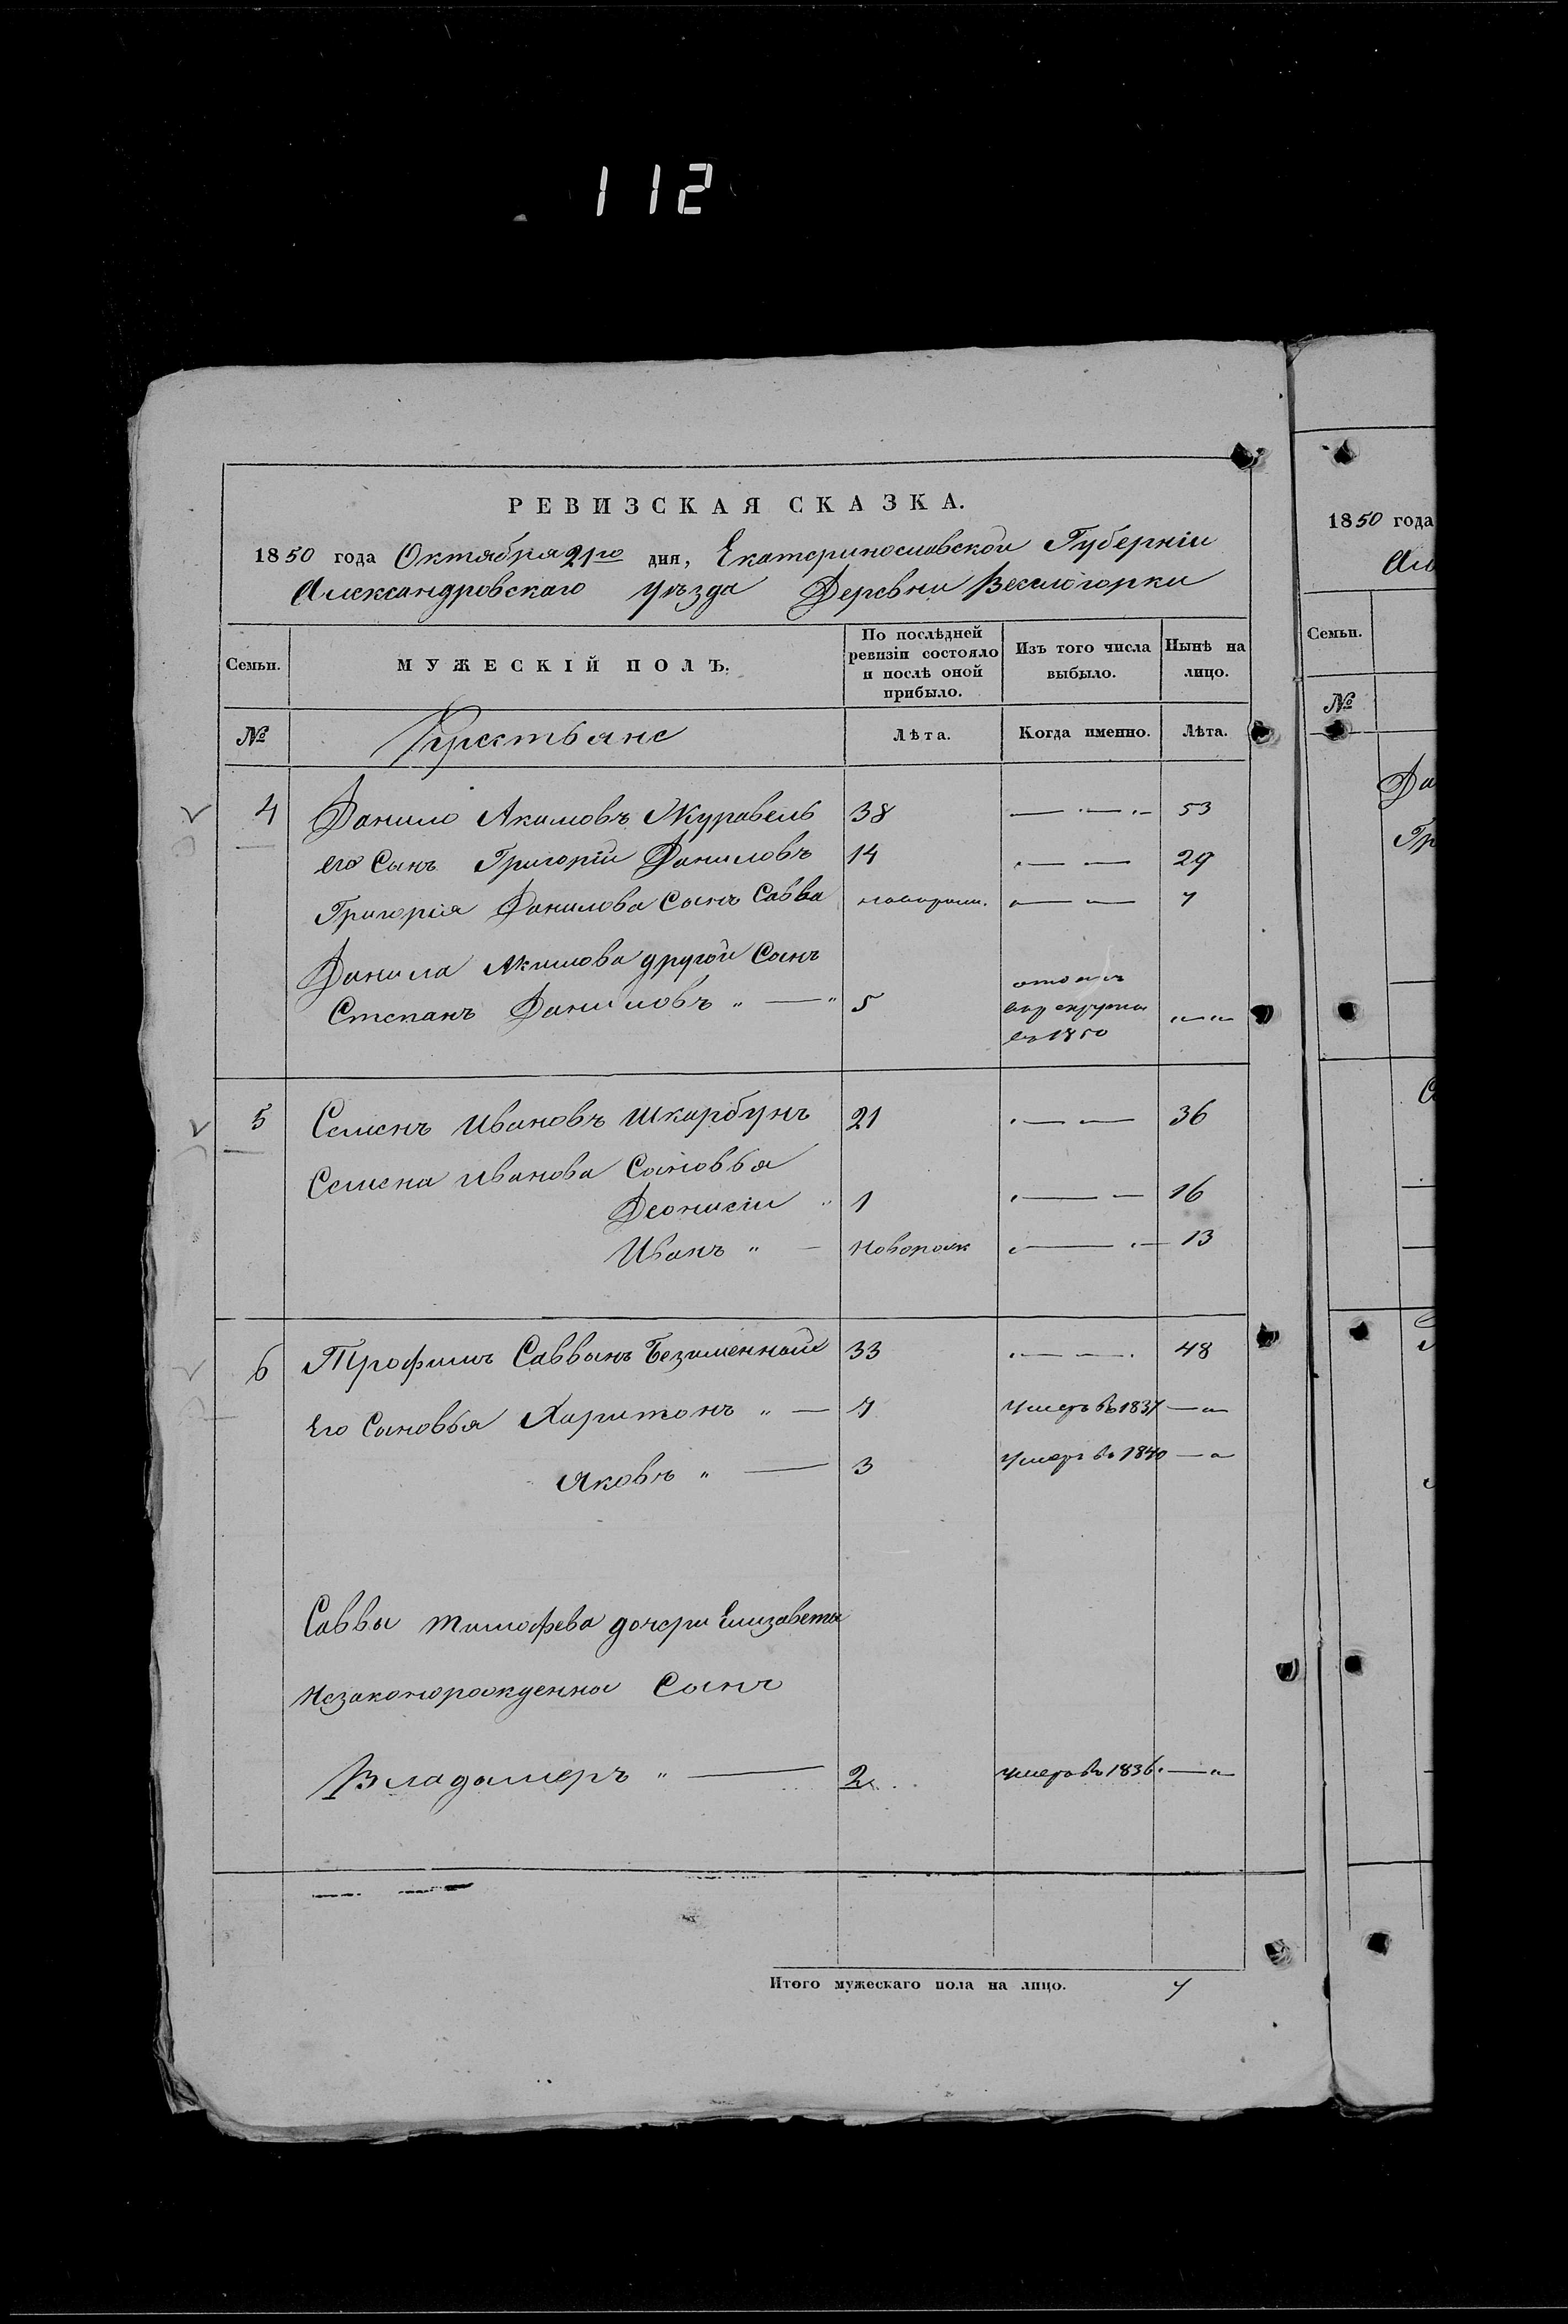 112
РЕВИЗСКАЯ СКАЗКА.
1850 года Октября 21го дня, Екатеринославской Губерніи
Александровскаго уѣзда Деревни Веселогорки
Семьи. МУЖЕСКІЙ ПОЛЪ. По послѣдней ревизіи состояло и послѣ оной прибыло. Изъ того числа выбыло. Нынѣ на лицо.
№ Крестьяне Лѣта. Когда именно. Лѣта.
4 Данило Акимовъ Журавель 38 53
его Сынъ Григорій Даниловъ 14 29
Григорія Данилова Сынъ Савва новорожд. 7
Данила Акимова другой Сынъ
Степанъ Даниловъ 5 отданъ в рекруты въ 1850
5 Семенъ Ивановъ Шкарбунъ 21 36
Семена Иванова Сыновья
Деонисій 1 16
Иванъ новорожд 13
6 Трофимъ Саввинъ Безименный 33 48
Его Сыновья Харитонъ 7 Умеръ въ 1837
Яковъ 3 Умеръ въ 1840
Саввы Тимофева дочери Елизаветы
Незаконорожденны Сынъ
Владимеръ 2 умеръ въ 1836
Итого мужескаго пола на лицо. 7
1850 года
Ал
Семьи.
№
Да
Гр